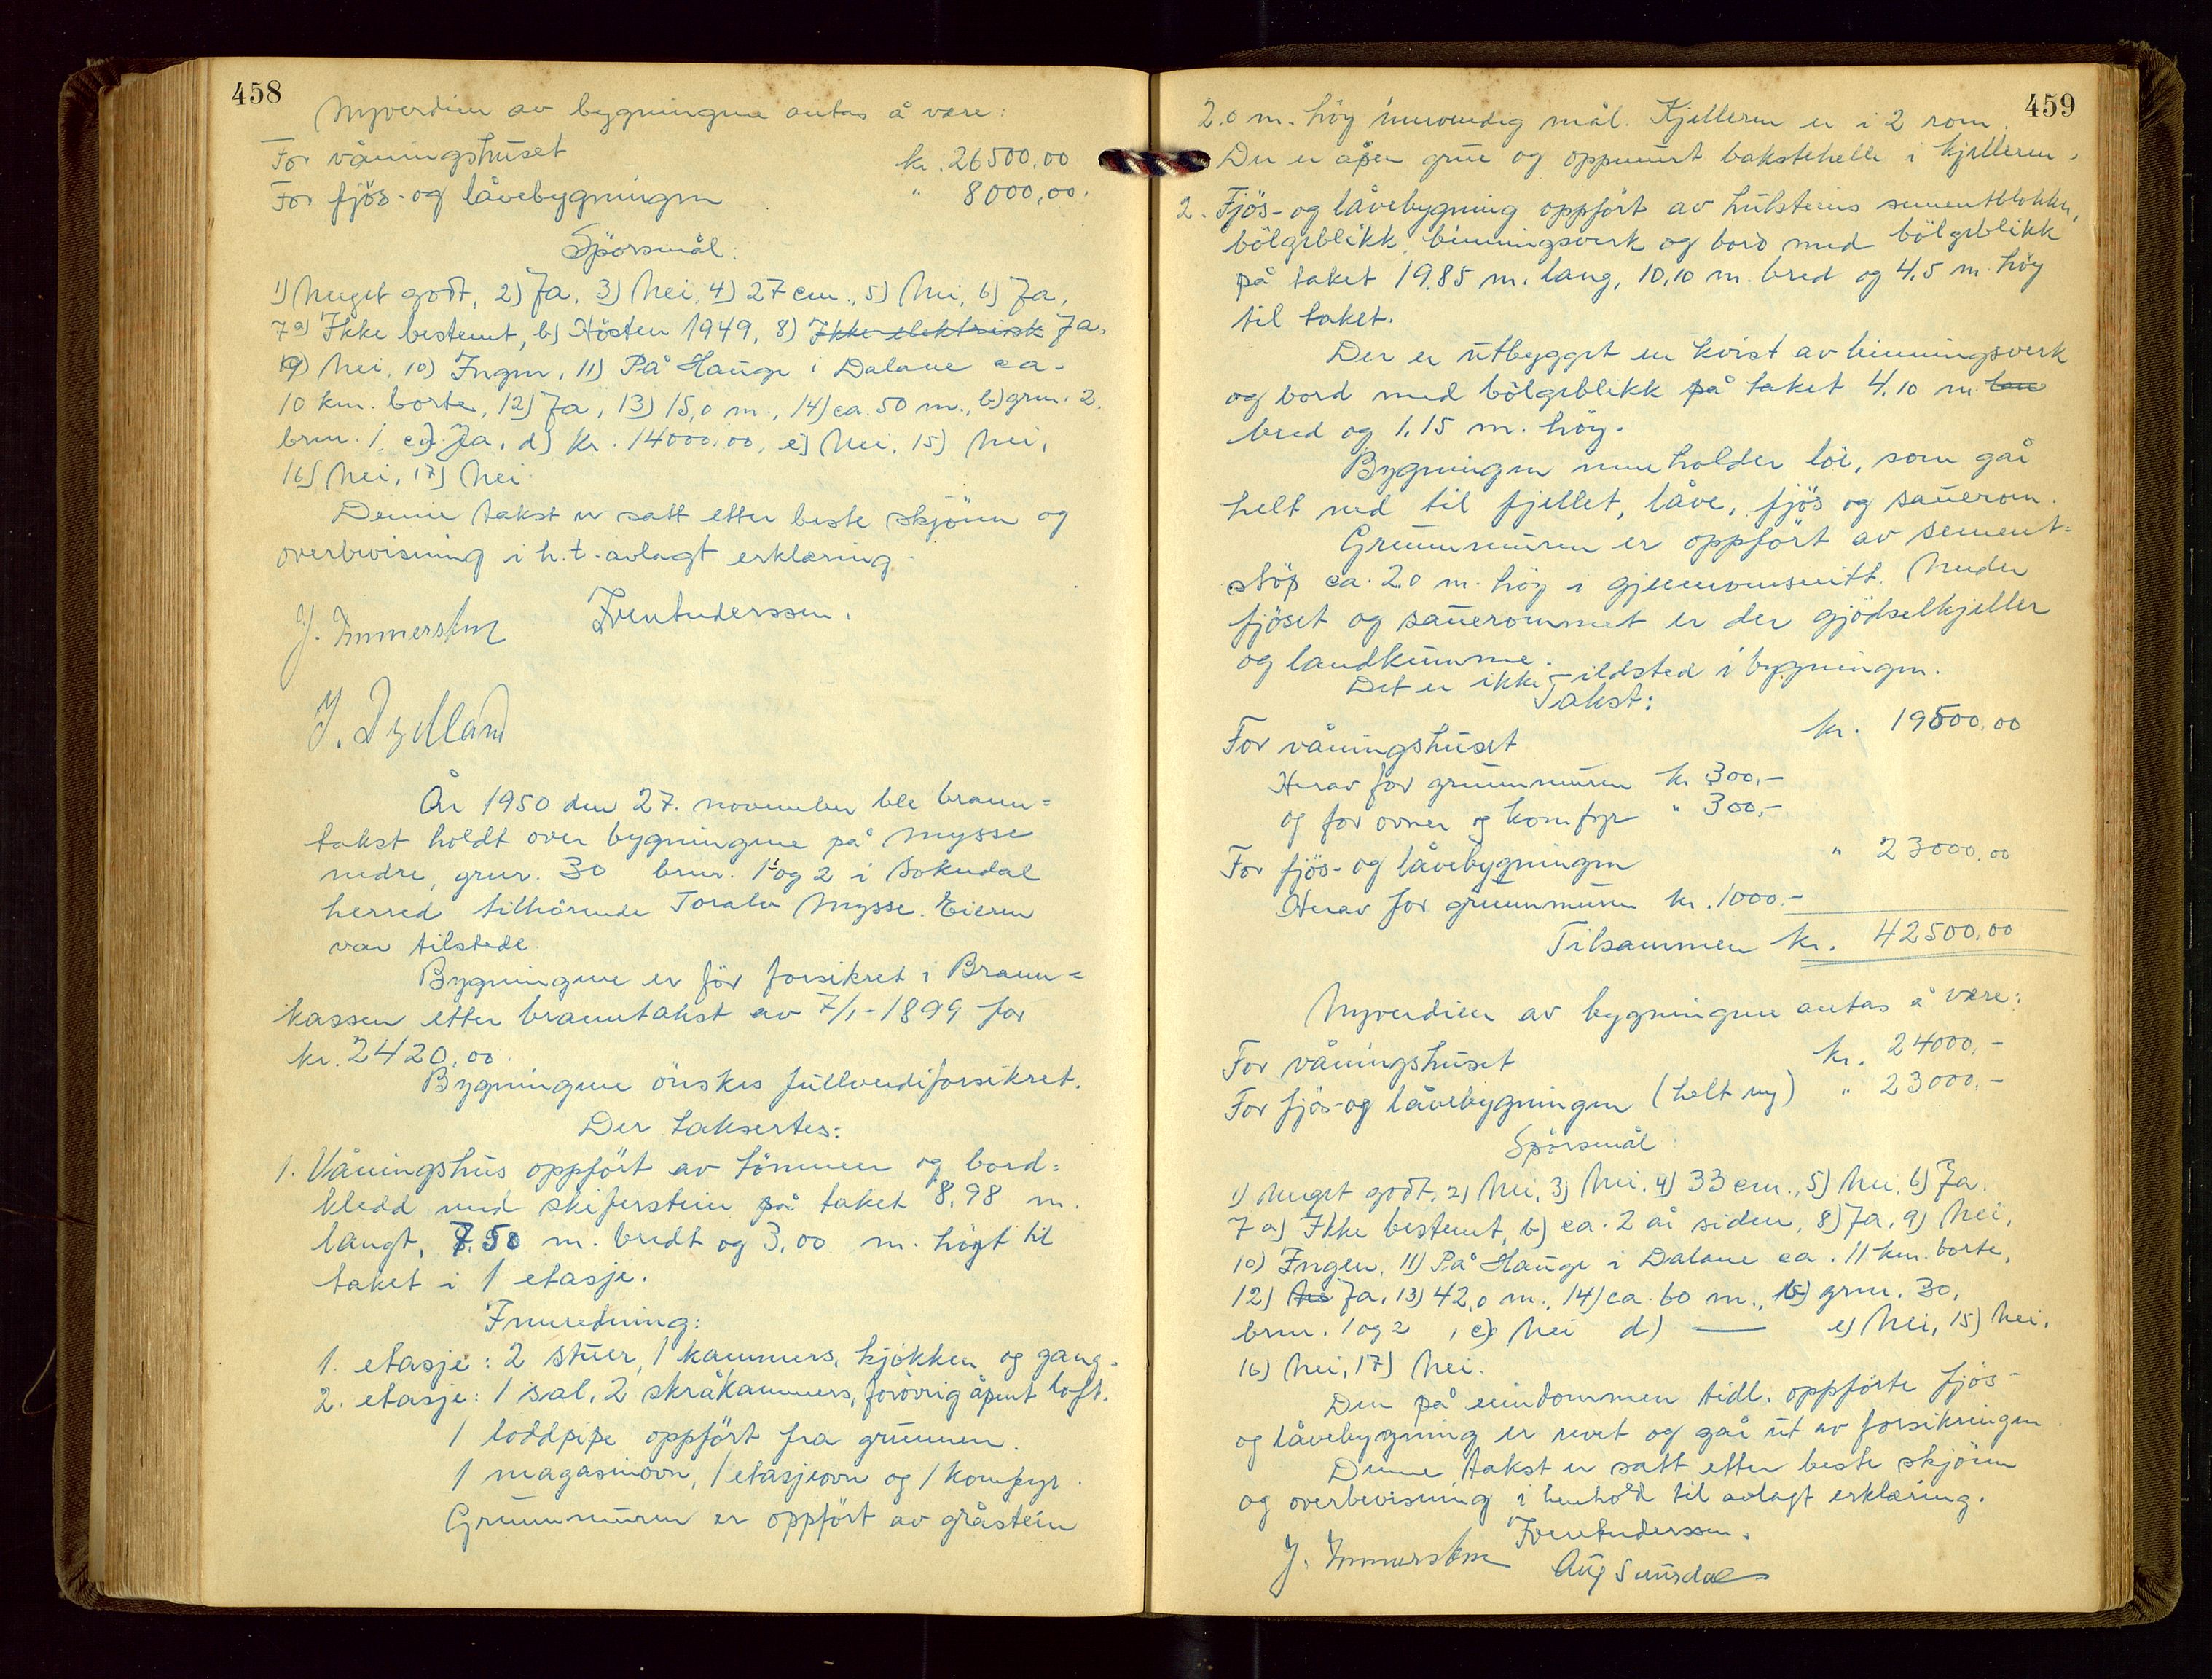 458
Nyverdien av bygningene antas å være:
For våningshuset kr. 26500,00
For fjös- og låvebygningen " 8000,00.
Spörsmål:
1) Meget godt, 2) Ja, 3) Nei, 4) 27 cm., 5) Nei, 6) Ja,
7 a) Ikke bestemt, b) Hösten 1949, 8) Ikke elektrisk Ja,
9) Nei, 10) Ingen, 11) På Hauge i Dalane ca.
10 km. borte, 12) Ja, 13) 15,0 m., 14) ca. 50 m., b) grnr. 2,
brnr. 1, c) Ja, d) kr. 14000,00, e) Nei, 15) Nei,
16) Nei, 17) Nei
Denne takst er satt etter beste skjönn og
overbevisning i h.t. avlagt erklæring.
J. Immerstein
J. Dydland
År 1950 den 27. november ble brann=
takst holdt over bygningene på Mysse
nedre, grnr. 30 brnr. 1 og 2 i Sokndal
herred tilhörende Toralv Mysse. Eieren
var tilstede.
Bygningene er för forsikret i Brann=
kassen etter branntakst av 7/1-1899 for
kr. 2420,00.
Bygningene önskes fullverdiforsikret.
Der taksertes:
1. Våningshus oppfört av tömmer og bord=
kledd med skiferstein på taket 8,98 m.
langt, 7,50 m. bredt og 3,00 m. höyt til
taket i 1 etasje.
Innredning:
1. etasje: 2 stuer, 1 kammers, kjökken og gang.
2. etasje: 1 sal, 2 skråkammers, forövrig åpent loft.
1 loddpipe oppfört fra grunnen.
1 magasinovn, 1 etasjeovn og 1 komfyr.
Grunnmuren er oppfört av gråstein
459
2.0 m. höy innvendig mål. Kjelleren er i 2 rom.
Der er åpen grue og oppmurt bakstehelle i kjelleren.
2. Fjös- og låvebygning oppfört av hulsteins sementblokker,
bölgeblikk, binningsverk og bord med bölgeblikk
på taket 19,85 m. lang, 10,10 m. bred og 4,5 m. höy
til taket.
Der er utbygget en kvist av binningsverk
og bord med bölgeblikk på taket 4,10 m. lan
bred og 1,15 m. höy.
Bygningen inneholder löe, som går
helt ned til fjellet, låve, fjös og sauerom.
Grunnmuren er oppfört av sement=
stöp ca. 2.0 m. höy i gjennomsnitt. Under
fjöset og sauerommet er der gjödselkjeller
og landkumme.
Det er ikke ildsted i bygningen.
Takst:
For våningshuset kr. 19500,00
Herav for grunnmuren kr. 300,-
og for ovner og komfyr " 300,-
For fjös- og låvebygningen " 23000,00
Herav for grunnmuren kr. 1000.-
Tilsammen kr. 42500,00
Nyverdien av bygningene antas å være:
For våningshuset kr. 24000,-
For fjös- og låvebygningen (helt ny) " 23000,-
Spörsmål:
1) Meget godt, 2) Nei, 3) Nei, 4) 33 cm., 5) Nei, 6) Ja.
7 a) Ikke bestemt, b) ca. 2 år siden, 8) Ja, 9) Nei,
10) Ingen, 11) På Hauge i Dalane ca. 11 km. borte,
12) Nei Ja, 13) 42,0 m., 14) ca. 60 m., b) grnr. 30,
brnr. 1 og 2, c) Nei d) — e) Nei, 15) Nei,
16) Nei, 17) Nei.
Den på eiendommen tidl. oppförte fjös-
og låvebygning er revet og går ut av forsikringen
Denne takst er satt etter beste skjönn
og overbevisning i henhold til avlagt erklæring.
J. Immerstein Aug Sunsdal